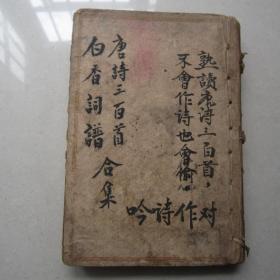 熟讀唐诗三百首，
不會作诗也會偷心
对
作
詩
吟
唐詩三百首
白香詞譜
合集